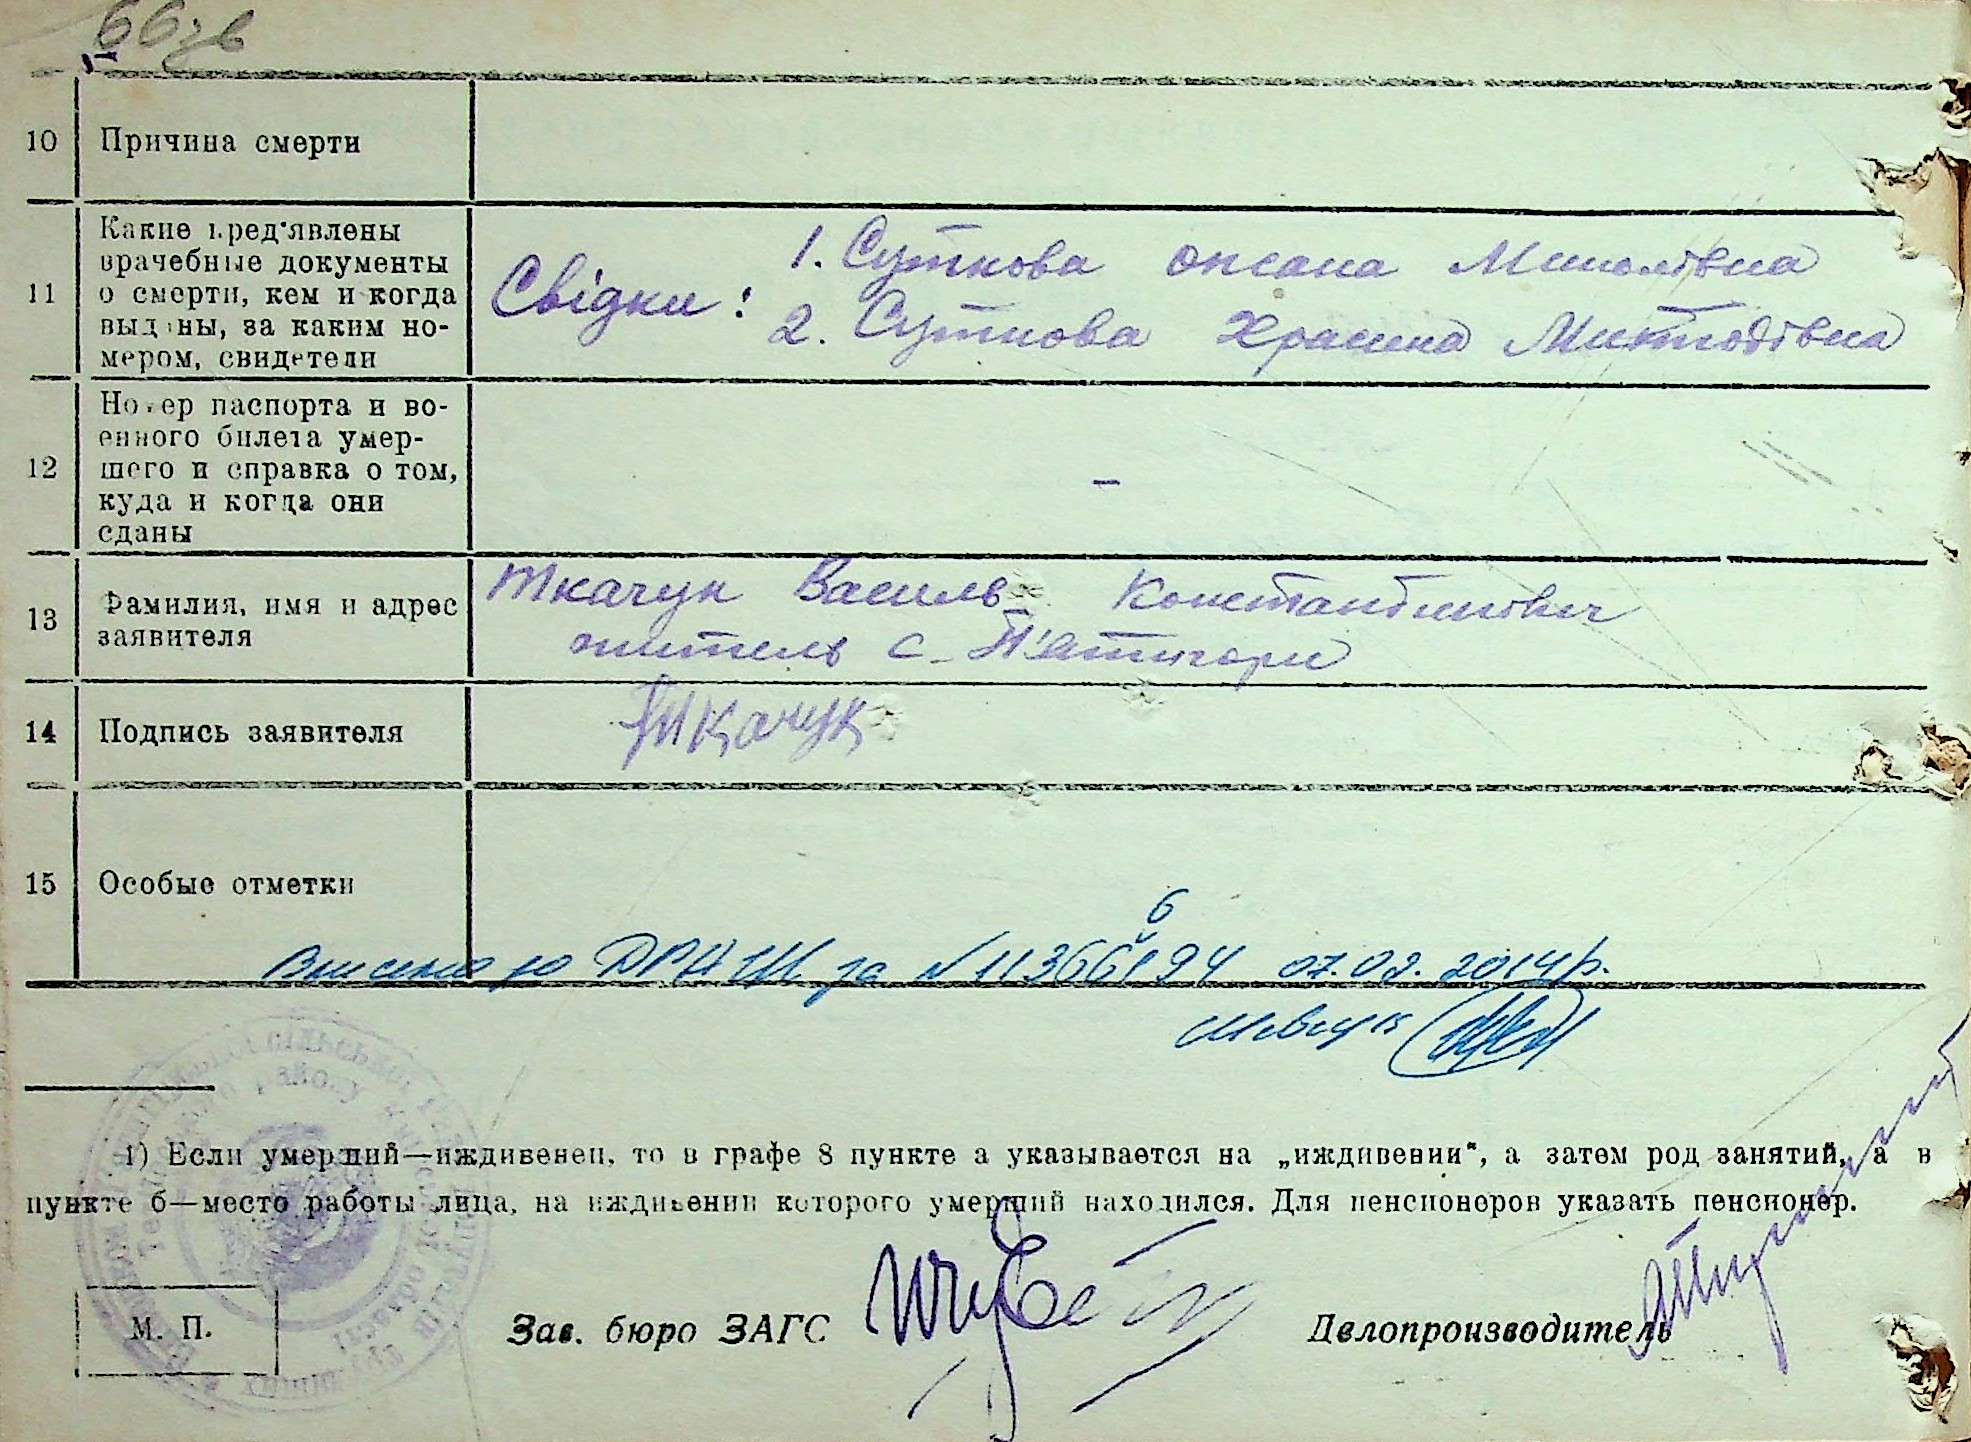 66зв
10 Причина смерти
11 Какие пред'явлены
врачебные документы
о смерти, кем и когда
выданы, за каким но-
мером, свидетели
Свідки: 1. Суткова Оксана
2. Суткова
12 Номер паспорта и во-
енного билета умер-
шего и справка о том,
куда и когда они
сданы
–
13 Фамилия, имя и адрес
заявителя
Ткачук Василь Константинович
житель с. П'ятигори
14 Подпись заявителя
Ткачук
15 Особые отметки
Внесено до ДРАЦС за № 07.02.2014р.
1) Если умерший—иждивенец, то в графе 8 пункте а указывается на „иждивении“, а затем род занятий, а в
пункте б—место работы лица, на иждивении которого умерший находился. Для пенсионеров указать пенсионер.
М. П.
Зав. бюро ЗАГС
Делопроизводитель